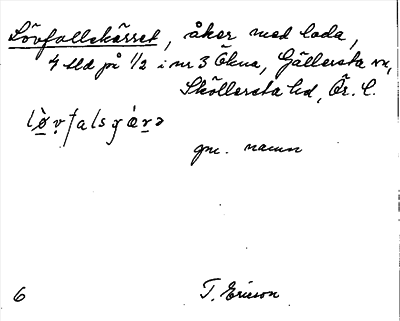 Lövfallskärret, åker med lada,
4 tld på 1/2 i nr 3 Ökna, Gällersta sn,
Sköllersta hd, Ör. l.
gm. namn
6 T. Ericson